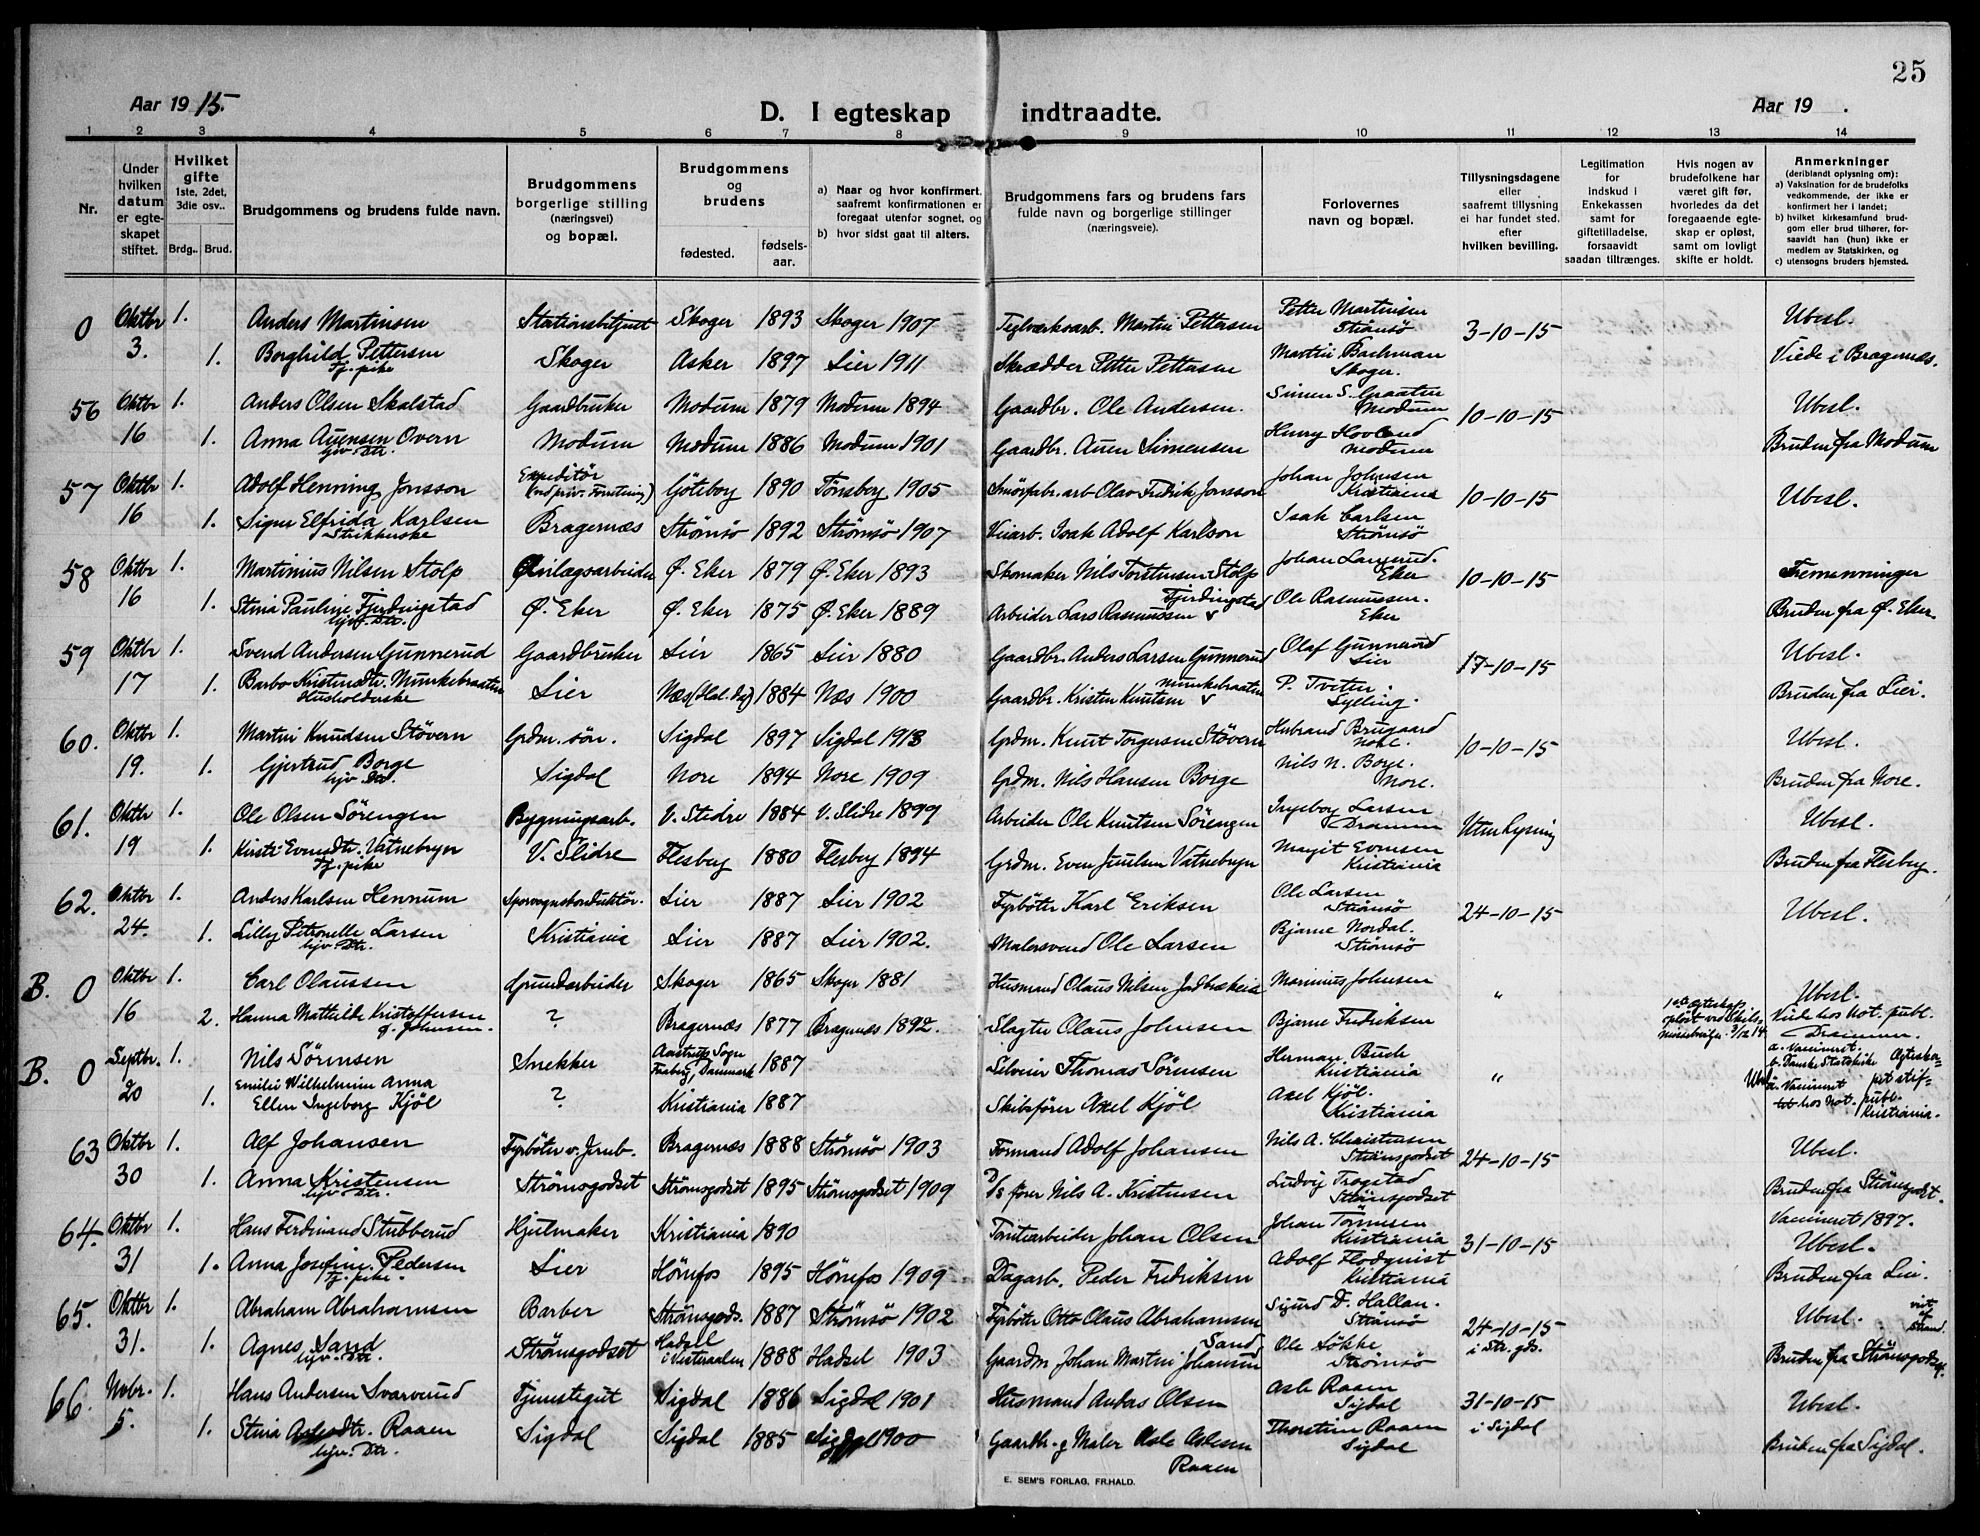 25
Aar 1915.
D. I egteskap indtraadte.
Aar 19 .
1 2 3 4 5 6 7 8 9 10 11 12 13 14
Nr.
Under
hvilken
datum
er egte-
skapet
stiftet.
Hvilket
gifte
1ste, 2det,
3die osv..
Brdg.. Brud.
Brudgommens og brudens fulde navn.
Brudgommens
borgerlige stilling
(næringsvei)
og bopæl.
Brudgommens
og
brudens
fødested.
fødsels-
aar.
a) Naar og hvor konfirmert,
saafremt konfirmationen er
foregaat utenfor sognet, og
b) hvor sidst gaat til alters.
Brudgommens fars og brudens fars
fulde navn og borgerlige stillinger
(næringsveie).
Forlovernes
navn og bopæl.
Tillysningsdagene
eller
saafremt tillysning
ei har fundet sted.
efter
hvilken bevilling.
Legitimation
for
indskud i
Enkekassen
samt for
giftetilladelse,
forsaavidt
saadan tiltrænges.
Hvis nogen av
brudefolkene har
været gift før,
hvorledes da det
foregaaende egte-
skap er opløst,
samt om lovligt
skifte er holdt.
Anmerkninger
(deriblandt oplysning om):
a) Vaksination for de brudefolks
vedkommende, der ikke er
konfirmert her i landet;
b) hvilket kirkesamfund brud-
gom eller brud tilhører, for-
saavidt han (hun) ikke er
medlem av Statskirken, og
c) utensogns bruders hjemsted.
0 Oktbr 1. Anders Martinsen Stationsbetjent Skoger 1893 Skoger 1907 Teglverksarb. Martin Pettersen Petter Martinsen Strømsö 3-10-15 Ubesl.
3. 1. Borghild Pettersen Tj. pike Skoger Asker 1897 Lier 1911 Skrædder Petter Pettersen Martin Bachman Skoger. Viede i Bragernæs.
56 Oktbr 1. Anders Olsen Skalstad Gaardbruker Modum 1879 Modum 1894 Gaardbr. Ole Andersen. Simen S. Graaten Modum 10-10-15 Ubesl.
16 1. Anna Auensen Overn hjv. Dtr. Modum Modum 1886 Modum 1901 Gaardbr. Auen Simensen Henry Hovland Modum Bruden fra Modum
57 Oktbr 1. Adolf Henning Jonsson Expeditör Göteborg 1890 Tønsberg 1905 Smörfabr. arb. Olav Fredrik Jonsson Johan Johnsen Kristiania 10-10-15 Ubesl.
16 1. Signe Elfrida Karlsen Strikkerske Bragernæs Strømsö 1892 Strømsö 1907 Isak Adolf Karlson Isak Carlsen Strömsö
58 Oktbr 1. Martinius Nilsen Stolp Anlægsarbeider Ø. Eker 1879 Ø. Eker 1893 Skomaker Nils Torstensen Stolp Johan Langerud. Eker 10-10-15 Fremenninger
16 1. Stina Pauline Fjerdingstad hjv. Dtr. Ø. Eker Ø. Eker 1875 Ø. Eker 1889 Arbeider Lars Rasmussen Fjerdingstad Ole Rasmussen. Eker Bruden fra Ø. Eker
59 Oktbr 1. Svend Andersen Gunnerud Gaardbruker Lier 1865 Lier 1880 Gaardbr. Anders Larsen Gunnerud Olaf Gunnerud Lier 17-10-15 Ubesl.
17 1. Barbo Kristensdtr. Munkebraaten Husholderske Lier Næs (Hal. dal) 1884 Næs 1900 Gaardbr. Kristen Knutsen Munkebraaten P. Tveten. Sylling. Bruden fra Lier.
60. Oktbr 1. Martin Knudsen Støvern Grdm. sön. Sigdal 1897 Sigdal 1913 Grdm. Knut Torgersen Støvern Herbrand Brugaard Nore. 10-10-15 Ubesl.
19. 1. Gjertrud Borge hjv. Dtr. Sigdal Nore 1894 Nore 1909 Grdm. Nils Hansen Borge Nils N. Borge. Nore. Bruden fra Nore.
61. Oktbr 1. Ole Olsen Sörengen Bygningsarb. V. Slidre 1884 V. Slidre 1899 Arbeider Ole Knutsen Sörengen Ingeborg Larsen Drammen Uten lysning Ubesl.
19 1. Kirsti Evensdtr. Vatnebryn Tj. pike V. Slidre Flesberg 1880 Flesberg 1894 Grdm. Even Juulsen Vatnebryn Margit Evensen Kristiania Bruden fra Flesberg.
62. Oktbr 1. Anders Karlsen Hennum Sporvognskonduktör. Lier 1887 Lier 1902 Fyrböter Karl Eriksen Ole Larsen Strömsö 24-10-15 Ubesl.
24. 1. Lilly Petronelle Larsen hjv. Dtr. Kristiania Lier 1887 Lier 1902. Malersvend Ole Larsen Bjarne Nordal. Strömsö
B. 0 Oktbr 1. Carl Olaussen Grundarbeider Skoger 1865 Skoger 1881 Husmand Olaus Nilsen Marinius Johnsen „ Ubesl.
16 2. Hanna Mathilde Kristoffersen f. Johnsen. ? Bragernæs 1877 Bragernæs 1892. Slagter Olaus Johnsen Bjarne Fredriksen 1ste egteskap opløst ved Skils- 3/12 14. Viede hos Not. publ. Drammen.
B. 0 Septbr. 1. Nils Sörensen Snekker Aastrup Sogn Faaborg, Danmark 1887 Thomas Sörensen Herman Buch Kristiania „ a. Vaccineret. b. Danske Statskirke
20 1. Emilie Wilhelmine Anna Ellen Ingeborg Kjöl ? Kristiania 1887 Skibsfører Axel Kjöl Axel Kjöl. Kristiania Ubesl. a. Vaccineret Egteska- pet stif- tet hos Not. publ. Kristiania.
63 Oktbr 1. Alf Johansen Fyrböter v. Jernb. Bragernæs 1888 Strømsö 1903 Formand Adolf Johansen Nils A. Christensen Strømsgodset 24-10-15 Ubesl.
30 1. Anna Kristensen hjv. Dtr. Strömsgodset Strömsgodset 1895 Strömsgodset 1909 D/s fører Nils A. Kristensen Ludvig Trogstad Strömsgodset Bruden fra Strömsgodset.
64. Oktbr 1. Hans Ferdinand Stubberud Hjulmaker Kristiania 1890 Johan Olsen Johan Tönnesen Kristiania 31-10-15 Vaccineret 1897. Ubesl.
31 1. Anna Josefine Pedersen Tj. pike. Lier Hönefos 1895 Hönefos 1909 Dagarb. Peder Fredriksen Adolf Flodquist Kristiania Bruden fra Lier.
65. Oktbr 1. Abraham Abrahamsen Barber Strömsgods. 1887 Strømsö 1902 Fyrböter Otto Claus Abrahamsen Sigurd D. Hallan. Strömsö 24-10-15 i Str. gds. Ubesl.
31. 1. Agnes Sand hjv. Dtr. Strömsgodset Hadsel i Vesteraalen 1888 Hadsel 1903 Gaardm. Johan Martin Johansen Sand Ole Løkke Strömsö Bruden fra Strömsgodset.
66. Nvbr. 1. Hans Andersen Svarverud Tjenestegut Sigdal 1886 Sigdal 1901 Husmand Anders Olsen Asle Raaen Sigdal 31-10-15 i Sigdal Ubesl.
5. 1. Stina Aslesdtr. Raaen hjv. Dtr. Sigdal Sigdal 1885 Sigdal 1900 Gaardbr. og Maler Asle Aslesen Raaen Thorstein Raaen Sigdal Bruden fra Sigdal.
E. SEM'S FORLAG, FR.HALD.